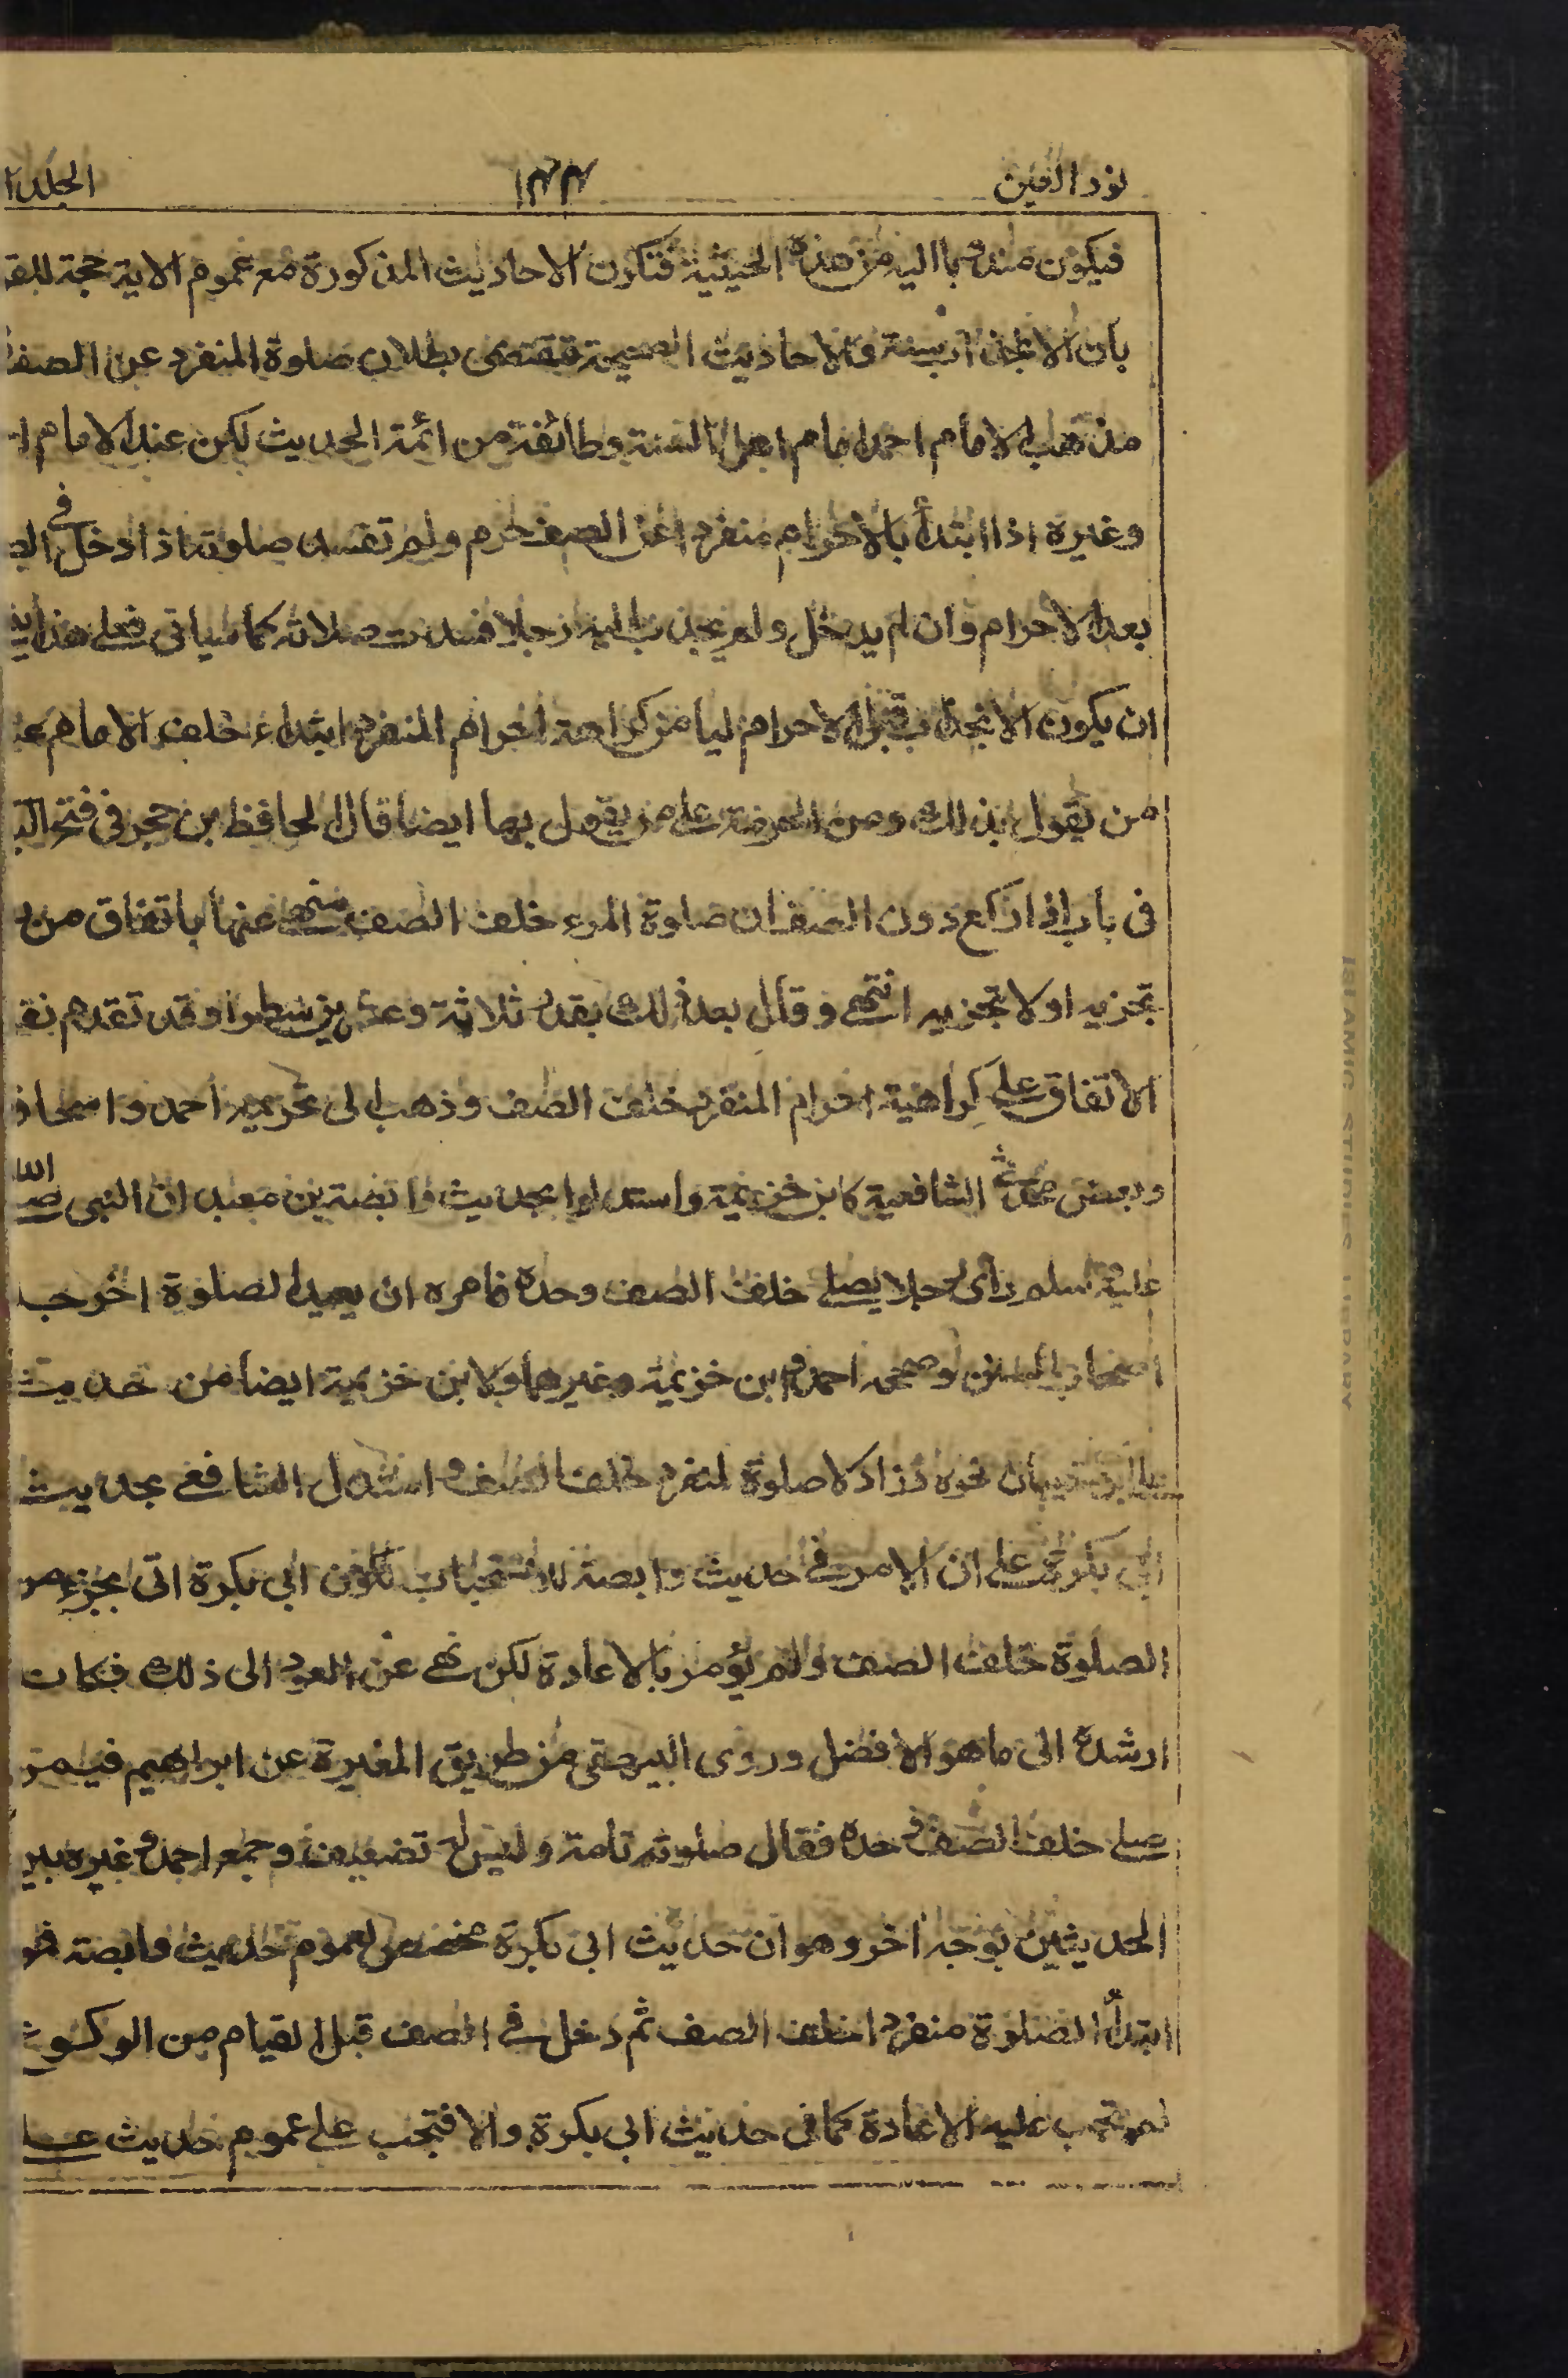 نور العين ١٤٤ الجلد ١
فيكون مندوبا اليه من هذه الحيثية فتكون الاحاديث المذكورة مع عموم الاية حجة
بان الانجذاب سنة والاحاديث الصحيحة تقتضى بطلان صلوة المنفرد عن الصف
مذهب الامام احمد امام اهل السنة وطائفة من ائمة الحديث لكن عند الامام
وغيره اذا ابتدأ بالاحرام منفردا عن الصف حرم ولم تفسد صلوته اذا دخل فى
بعد الاحرام وان لم يدخل ولم يجذب اليه رجلا فسدت صلاته كما سياتى فعلى هذا
ان يكون الانجذاب قبل الاحرام ليأمن كراهة احرام المنفرد ابتداء خلف الامام
من يقول بذلك ومن الحرمة على من يقول بها ايضا قال الحافظ بن حجر فى فتح
فى باب اذا ركع دون الصف ان صلوة المرء خلف الصف منهى عنها باتفاق من
تجزيه او لا تجزيه انتهى وقال بعد ذلك بقدر ثلاثة وعشرين سطرا وقد تقدم
الاتفاق على كراهية احرام المنفرد خلف الصف وذهب الى تحريمه احمد واسحاق
وبعض محدثى الشافعية كابن خزيمة واستدلوا بحديث وابصة بن معبد ان النبى صلى الله
عليه وسلم رأى رجلا يصلى خلف الصف وحده فامره ان يعيد الصلوة اخرجه
اصحاب السنن وصححه احمد وابن خزيمة وغيرهما ولابن خزيمة ايضا من حديث
على بن شيبان نحوه وزاد لا صلوة لمنفرد خلف الصف واستدل الشافعى بحديث
ابى بكرة على ان الامر فى حديث وابصة للاستحباب لكون ابى بكرة اتى بجزء من
الصلوة خلف الصف ولم يؤمر بالاعادة لكن نهى عن العود الى ذلك فكانه
ارشد الى ما هو الافضل وروى البيهقى من طريق المغيرة عن ابراهيم فيمن
صلى خلف الصف وحده فقال صلوته تامة وليس له تضعيف وجمع احمد وغيره بين
الحديثين بوجه اخر وهو ان حديث ابى بكرة مخصص لعموم حديث وابصة فمن
ابتدأ الصلوة منفردا خلف الصف ثم دخل فى الصف قبل القيام من الركوع
لم تجب عليه الاعادة كما فى حديث ابى بكرة والا فتجب على عموم حديث